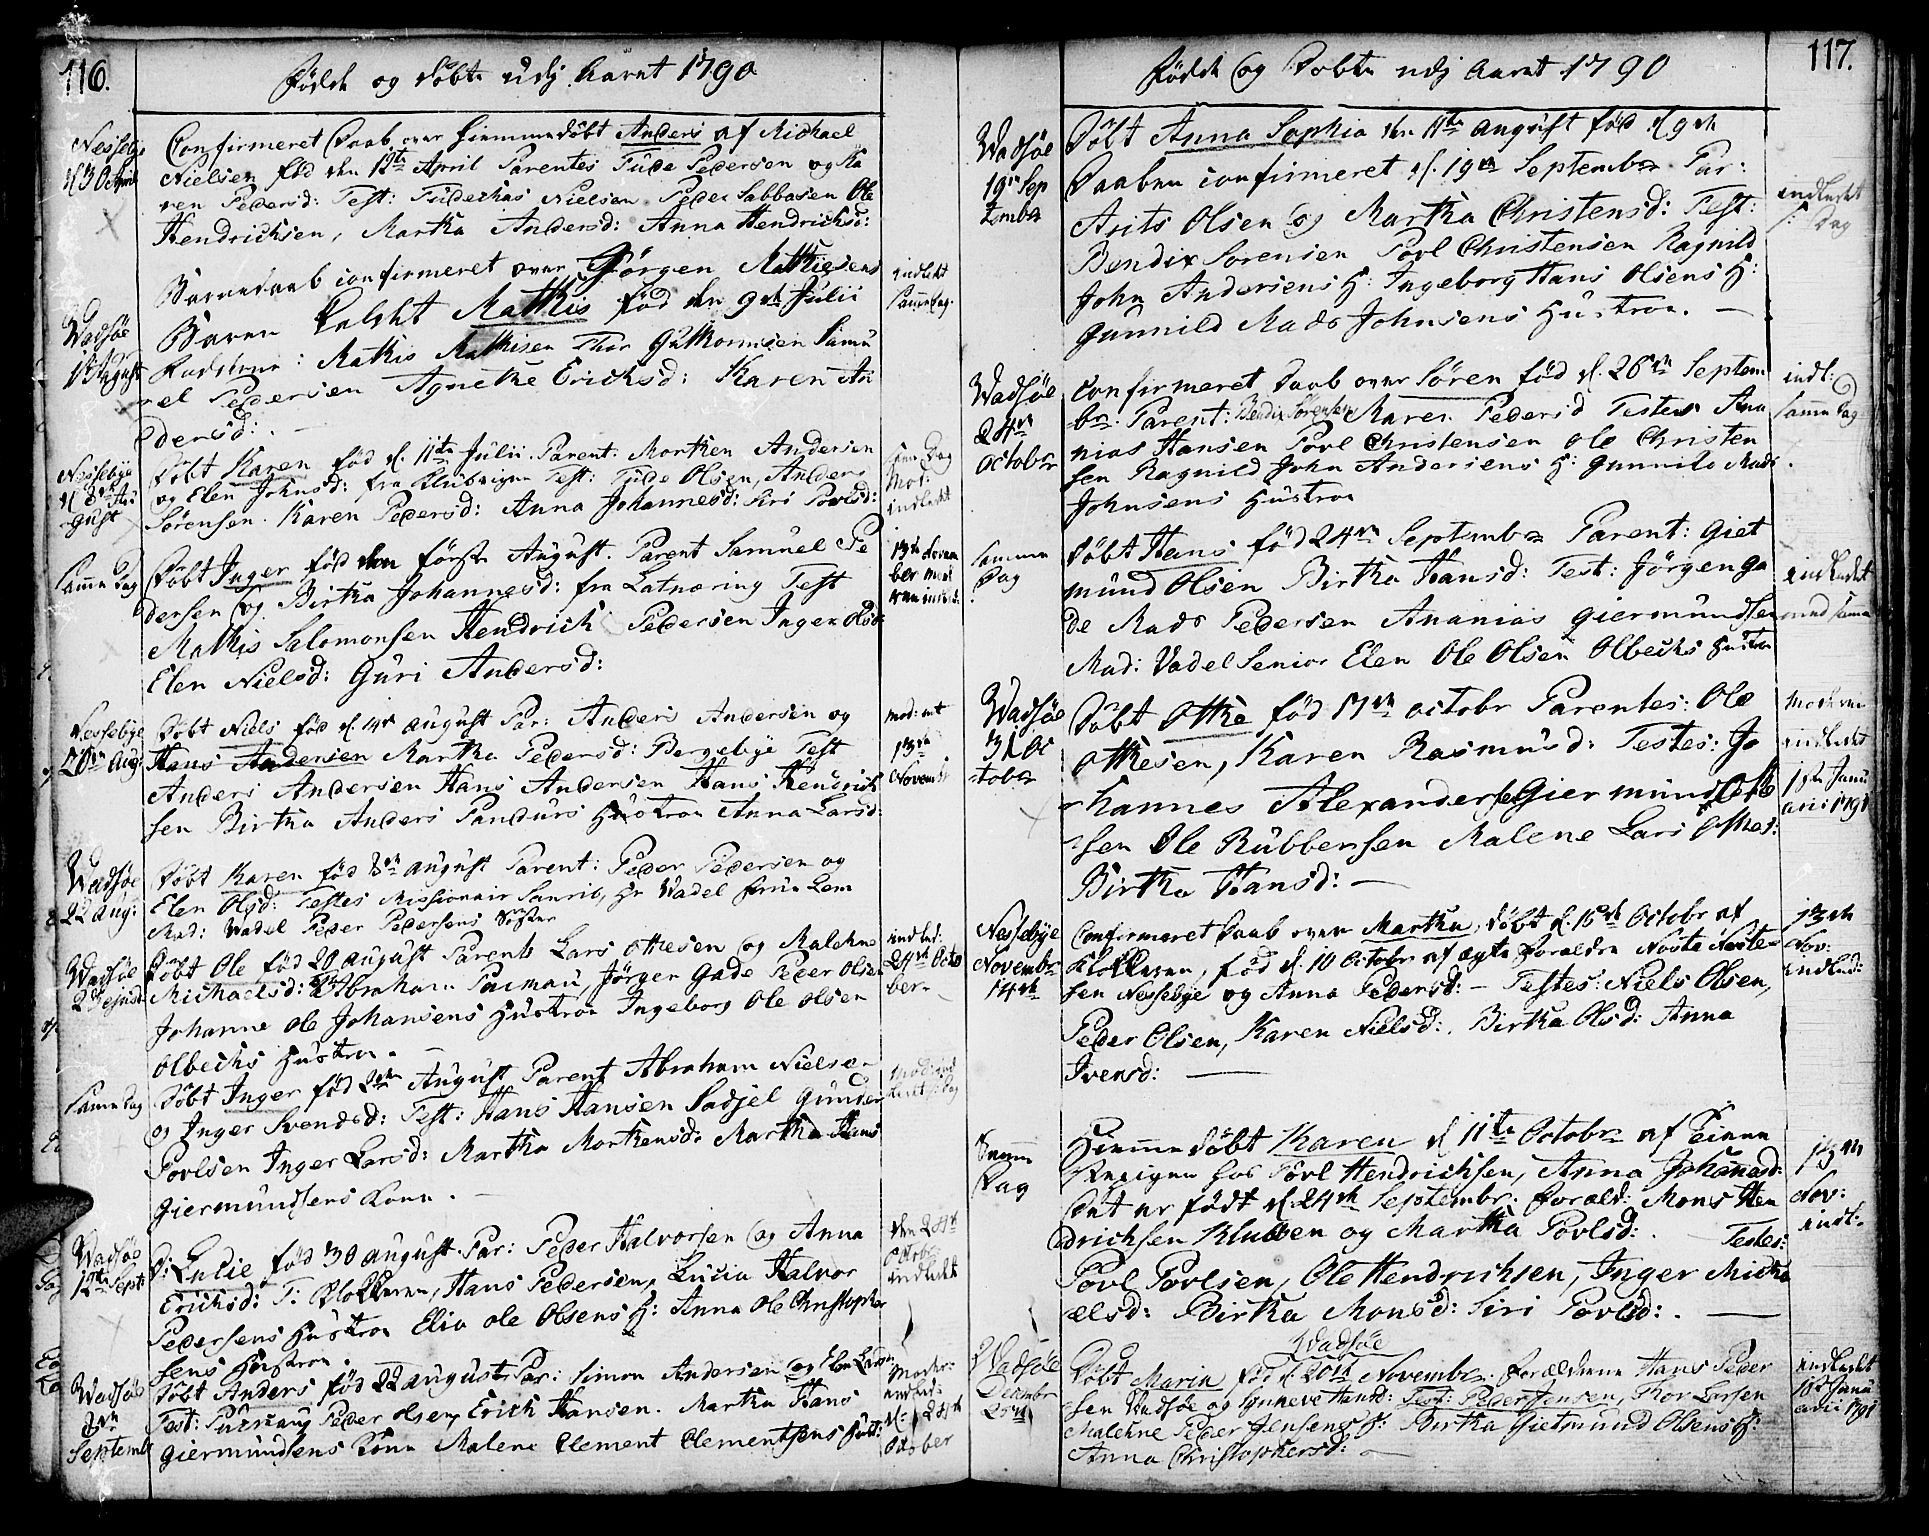 116.
Födde og döbte udj Aaret 1790
Nesseby
d 30 April
Confirmeret Daab over hiemmedöbt Anders af Michael
Nielsen föd den 12te April Parentes Tude Pedersen og Ka
ren Pedersd: Test: Nielsen Peder Sabbasen Ole
Hendrichsen, Martha Andersd: Anna Hendrichsd:
Wadsöe
1st August
Barnedaab confirmeret over Jörgen Mathiesens
Baren kaldet Mathis föd den 9de Julii
Fadderne: Mathis Mathisen Thor Guthormsen Samu
el Pedersen Agnethe Ericksd: Karen An
dersd:
indledt
samme Dag
Nessebye
d 8de Au
gust
Döbt Karen föd d. 11te Julii. Parent: Morthen Andersen
og Elen Johnsd: fra Test: Tude Olsen, Anders
Sörensen. Karen Pedersd: Anna Johannesd: Siri Povlsd:
samme Dag
Mod:
indledt
samme Dag
Döbt Inger föd den förste August. Parent Samuel Pe
dersen og Birtha Johannesd: fra Latnæring Test
Mathis Salomonsen Hendrich Pedersen Inger Olsd:
Elen Nielsd: Guri Andersd:
Nessebye
20de Aug:
Döbt Niels föd d. 14de August Par: Anders Andersen og
Hans Andersen Martha Pedersd: Bergebye Test
Anders Andersen Hans Andersen Hans Hendrich
sen Birtha Anders Pandurs Hustroe Anna Larsd:
13de
Novemb
Wadsöe
22 Aug:
Döbt Karen föd 3de August Parent: Peder Pedersen og
Elen Olsd: Testes Missionair Hr Wadel
Mad: Wadel Peder Pedersens Söster
Wadsöe
Döbt Ole föd 20 August Parents Lars Othesen og Malehne
Michaelsd: Abraham Jörgen Gade Peder Olsen
Johanne Ole Johansens Hustroe Ingeborg Ole Olsen
Olbechs Hustroe.
indled:
24de Octo
ber
samme Dag
Döbt Inger föd 2den August Parent Abraham Nielsen
og Inger Svendsd: Test: Hans Hansen Gunder
Povlsen Inger Larsd: Martha Morthensd: Martha Hans
Giermundsens Kone.
Wadsöe
12te Sept:
D: Lucie föd 30 August. Par: Peder Halvorsen og Anna
Ericksd: T: Klokkeren, Hans Pedersen, Lucia Halvor
Pedersens Hustroe Elia Ole Olsens H: Anna Ole Christopher
sens Hustroe.
den 24de
Octobr
indledt
Wadsöe
Septemb
Döbt Anders föd 22 August Par: Simon Andersen og Elen Larsd:
Test: Peder Olsen, Erich Hansen. Martha Hans
Giermundsens Kone Malene Clement Clementsens Hust:
Moder:
indled:
d: 24de
October
117.
Födde og Döbte udj Aaret 1790
Wadsöe
19de Sep
tember
Döbt Anna Sophia den 11te August föd d 9de
Daaben confirmeret d. 19de September Par:
Arits Olsen og Martha Christensd: Test:
Bendix Sorensen Povl Christensen Ragnild
John Andersens H: Ingeborg Hans Olsens H:
Gunnild Mads Johnsens Hustroe.
indledet
s: Dag
Wadsöe
24de
October
Confirmeret Daab over Sören föd d. 26de Septem
br. Parent: Bendix Sörensen Maren Pedersd Testes Ana
nias Hansen Povl Christensen Ole Christen
sen Ragnild John Andersens H: Gunnild Mads
Johnsens Hustroe
indl:
samme Dag
samme
Dag
Döbt Hans föd 24de September Parent: Giet
mund Olsen Birtha Hansd: Test: Jörgen Ga
de Mads Pedersen Ananias Giermundsen
Mad: Vadel Senior Elen Ole Olsen Olbechs Hustroe
indledet
Wadsöe
31 Oc
tober
Döbt Othe föd 17de Octobr Parentes: Ole
Othesen, Karen Rasmusd: Testes: Jo
hannes Alexandersen Giermund Othe
sen Ole Rubbensen Malene Lars Othes:
Birtha Hansd:
Moderen
indledet
1ste Janu
arii 1791
Nessebye
Novembr
14de
Confirmeret Daab over Martha, döbt d. 16de Octobr af
Klokkeren, föd d. 10 Octobr af ægte Forældre Noste Noste
sen Nessebye og Anna Pedersd: – Testes: Niels Olsen,
Peder Olsen, Karen Nielsd:. Birtha Olsd: Anna
Ivensd:
13de
Nov:
indled:
Samme
Dag
Hiemmedöbt Karen d 11te Octobr af
hos Povl Hendrichsen, Anna Johannesd:
Det er födt d. 24de Septembr. Foræld: Mons Hen
drichsen Klubben og Martha Povlsd:. Testes:
Povl Povlsen, Ole Hendrichsen, Inger Micha
elsd: Birtha Monsd: Siri Povlsd:.
13de
Nov:
indl:
Wadsöe
Wadsöe
Decembr
Döbt Maria föd d. 20de November. Forældrene Hans Peder
sen Wadsöe og Synneve Hansd: Test: Peder Jensen, Thor Larsen
Malehne Peder Jensens H: Birtha Gietmund Olsens H:
Anna Christophersd:
indledet
1ste Janu
arii 1791